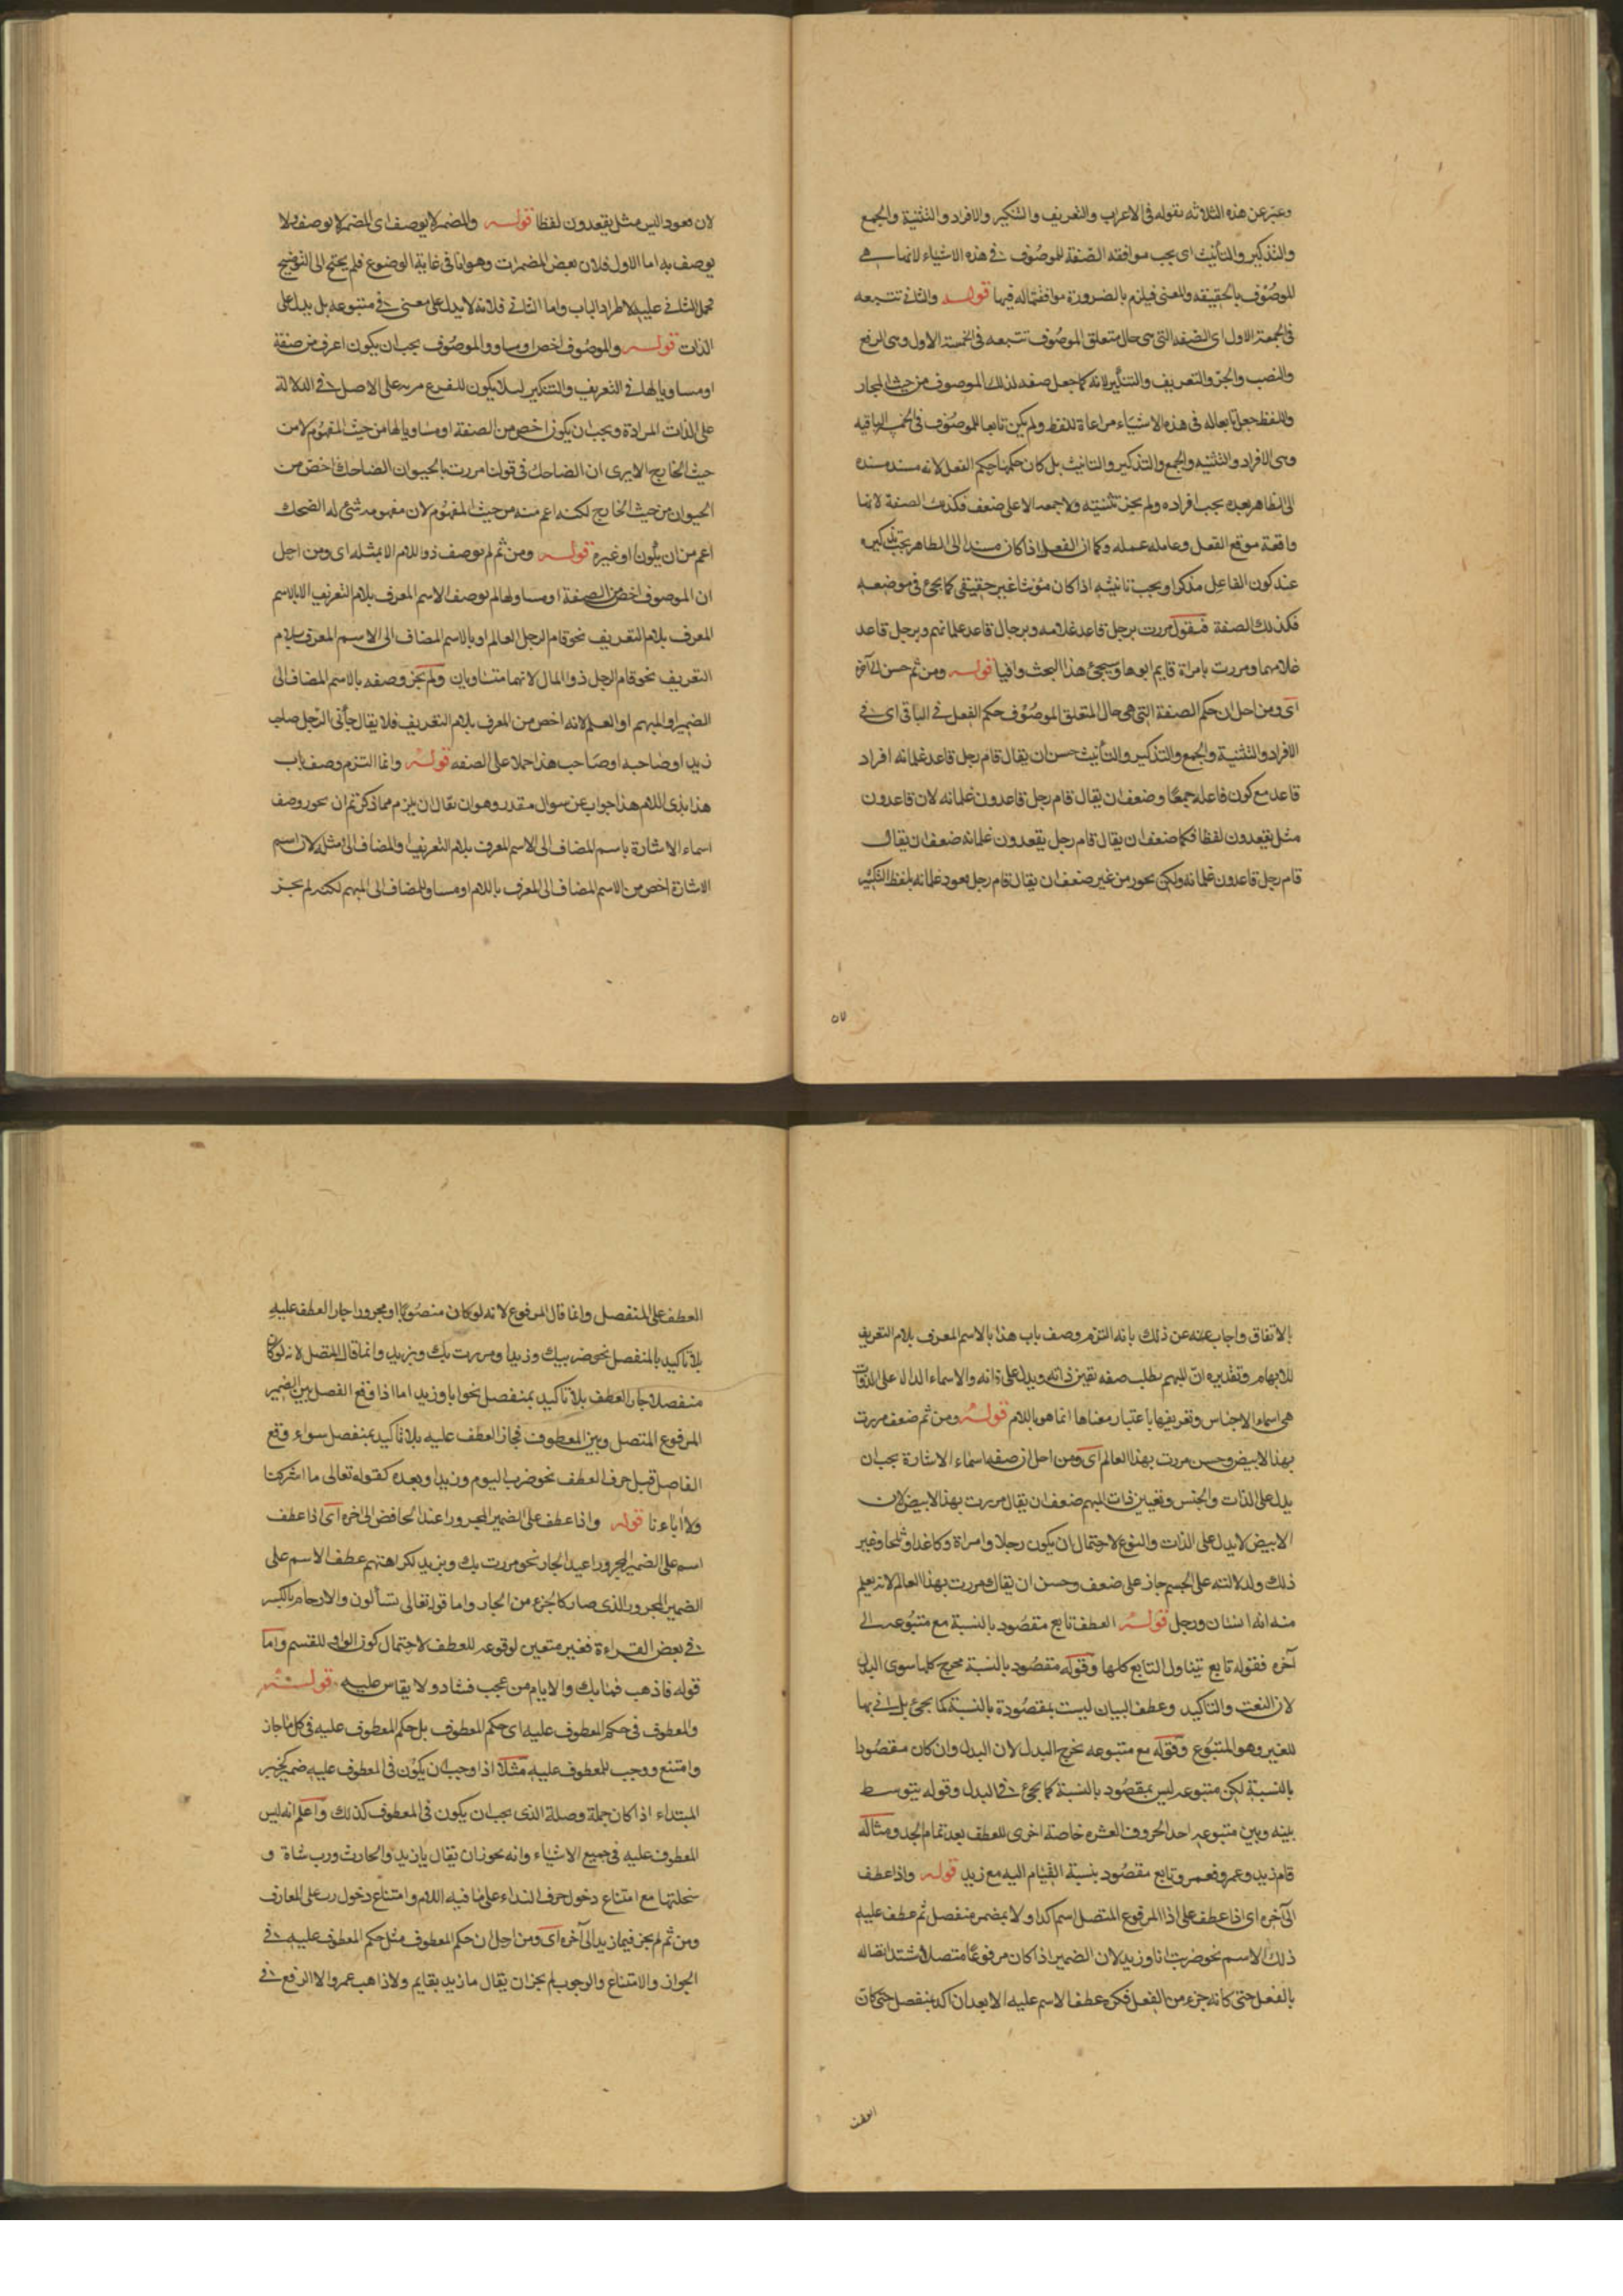 وعبر عن هذه الثلاثه بقوله فى الاعراب والتعريف والتنكير والافراد والتثنية والجمع
والتذكير والتانيث اى يجب موافقه الصفة للموصوف فى هذه الاشياء لانها هى
للموصوف بالحقيقه والمعنى فيلزم بالضرورة موافقتها له فيها قوله والثانى تتبعه
فى الخمسة الاول اى الصفه التى هى حال متعلق الموصوف تتبعه فى الخمسة الاول وهى الرفع
والنصب والجر والتعريف والتنكير لانه كما جعل صفه لذلك الموصوف من حيث المجاز
واللفظ جعل تابعا له فى هذه الاشياء مراعاة للفظ ولم يكن تابعا للموصوف فى الخمس الباقيه
وهى الافراد والتثنيه والجمع والتذكير والتانيث بل كان حكمها حكم الفعل لانه مسند مسنده
الى الظاهر بعده يجب افراده ولم يجز تثنيته ولا جمعه الا على ضعف فكذلك الصفة لانها
واقعة موقع الفعل وعامله عمله وكما ان الفعل اذا كان مسندا الى الظاهر يجب تذكيره
عند كون الفاعل مذكرا ويجب تانيثه اذا كان مؤنثا غير حقيقى كما يجئ فى موضعه
فكذلك الصفة فنقول مررت برجل قاعد غلامه وبرجال قاعد غلمانهم وبرجل قاعد
غلامهما ومررت بامراة قايم ابوها وسيجئ هذا البحث وافيا قوله ومن ثم حسن الى آخره
اى ومن اجل ان حكم الصفة التى هى حال المتعلق الموصوف حكم الفعل فى الباقى اى فى
الافراد والتثنية والجمع والتذكير والتأنيث حسن ان يقال قام رجل قاعد غلمانه افراد
قاعد مع كون فاعله جمعا وضعف ان يقال قام رجل قاعدون غلمانه لان قاعدون
مثل يقعدون لفظا فكما ضعف ان يقال قام رجل يقعدون غلمانه ضعف ان يقال
قام رجل قاعدون غلمانه ولكن يجوز من غير ضعف ان يقال قام رجل قعود غلمانه بلفظ التكسير
لان
لان قعود ليس مثل يقعدون لفظا قوله والمضمر لا يوصف اى المضمر لا يوصف ولا
يوصف به اما الاول فلان بعض المضمرات وهو انا فى غاية الوضوع فلم يحتج الى التوضيح
فحمل الباقى عليه لاطراد الباب واما الثانى فلانه لا يدل على معنى فى متبوعه بل يدل على
الذات قوله والموصوف اخص او مساو والموصوف يجب ان يكون اعرف من صفة
او مساويا لها فى التعريف والتنكير ليلا يكون للفرع مزية على الاصل فى الدلالة
على الذات المرادة ويجب ان يكون اخص من الصفة او مساويا لها من حيث المفهوم لا من
حيث الخارج الا يرى ان الضاحك فى قولنا مررت بالحيوان الضاحك اخص من
الحيوان من حيث الخارج لكنه اعم منه من حيث المفهوم لان مفهومه شئ له الضحك
اعم من ان يكون او غيره قوله ومن ثم لم يوصف ذو اللام الا بمثله اى ومن اجل
ان الموصوف اخص من الصفة او مساو لها لم يوصف الاسم المعرف بلام التعريف الا بالاسم
المعرف بلام التعريف نحو قام الرجل العالم او بالاسم المضاف الى الاسم المعرف بلام
التعريف نحو قام الرجل ذو المال لانهما متساويان ولم يجز وصفه بالاسم المضاف الى
الضمير او المبهم او العلم لانه اخص من المعرف بلام التعريف فلا يقال جأنى الرجل صاحب
زيد او صاحبه او صاحب هذا حملا على الصفه قوله وانما التزم وصف باب
هذا بذى اللام هذا جواب عن سوال مقدر وهو ان يقال ان يلزم مما ذكرتم ان يجوز وصف
اسماء الاشارة باسم المضاف الى الاسم المعرف بلام التعريف او المضاف الى مثله لان اسم
الاشارة اخص من الاسم المضاف الى المعرف باللام او مساو للمضاف الى المبهم لكنه لم يجز
بالاتفاق واجاب عنه عن ذلك بانه التزم وصف باب هذا بالاسم المعرف بلام التعريف
للابهام وتقديره ان المبهم يطلب صفه تعين ذاته ويدل على ذاته والاسماء الداله على الذوات
هى اسماء الاجناس وتعريفها باعتبار معناها انما هو باللام قوله ومن ثم ضعف مررت
بهذا الابيض وحسن مررت بهذا العالم اى ومن اجل ان صفه اسماء الاشارة يجب ان
يدل على الذات والجنس وتعيين ذات المبهم ضعف ان يقال مررت بهذا الابيض لان
الابيض لا يدل على الذات والنوع لاحتمال ان يكون رجلا وامراة وكاغدا وثلجا وغير
ذلك ولدلالته على الجسم جاز على ضعف وحسن ان يقال مررت بهذا العالم لانه يعلم
منه انه انسان ورجل قوله العطف تابع مقصود بالنسبة مع متبوعه الى
آخره فقوله تابع يتناول التابع كلها وقوله مقصود بالنسبة يخرج كلها سوى البدل
لان النعت والتاكيد وعطف البيان ليست بمقصودة بالنسبة كما يجئ بل اتى بها
للغير وهو المتبوع وقوله مع متبوعه يخرج البدل لان البدل وان كان مقصودا
بالنسبة لكن متبوعه ليس بمقصود بالنسبة كما يجئ فى البدل وقوله يتوسط
بينه وبين متبوعه احد الحروف العشره خاصة اخرى للعطف بعد تمام الحد ومثاله
قام زيد وعمرو فعمرو تابع مقصود بنسبة القيام اليه مع زيد قوله واذا عطف
الى آخره اى اذا عطف على اذا المرفوع المتصل اسم اكد اولا بمضمر منفصل ثم عطف عليه
ذلك الاسم نحو ضربت انا وزيد لان الضمير اذا كان مرفوعا متصلا اشتد اتصاله
بالفعل حتى كانه جزء من الفعل فكره عطف الاسم عليه الا بعد ان اكد بمنفصل حتى كان
العطف
العطف على المنفصل وانما قال المرفوع لانه لو كان منصوبا او مجرورا جاز العطف عليه
بلا تاكيد بالمنفصل نحو ضربتك وزيدا ومررت بك وبزيد وانما قال المتصل لانه لو كان
منفصلا جاز العطف بلا تاكيد بمنفصل نحو ايا وزيد اما اذا وقع الفصل بين الضمير
المرفوع المتصل وبين المعطوف فجاز العطف عليه بلا تاكيد بمنفصل سواء وقع
الفاصل قبل حرف العطف نحو ضربت اليوم وزيدا وبعده كقوله تعالى ما اشركنا
ولا اباءنا قوله واذا عطف على الضمير المجرور اعيد الخافض الى اخره اى اذا عطف
اسم على الضمير المجرور اعيد الجار نحو مررت بك وبزيد لكراهتهم عطف الاسم على
الضمير المجرور الذى صار كالجزء من الجار واما قوله تعالى تسألون والارحام بالكسر
فى بعض القراءة فغير متعين لوقوعه للعطف لاحتمال كون الواو للقسم واما
قوله فاذهب فمابك والايام من عجب فشاذ ولا يقاس عليه قوله
والمعطوف فى حكم المعطوف عليه اى حكم المعطوف بل حكم المعطوف عليه فى كل ما جاز
وامتنع ووجب للمعطوف عليه مثلا اذا وجب ان يكون فى المعطوف عليه ضمير كخبر
المبتداء اذا كان جملة وصلة الذى يجب ان يكون فى المعطوف كذلك واعلم انه ليس
المعطوف عليه فى جميع الاشياء وانه يجوز ان يقال يا زيد والحارث ورب شاة و
سخلتها مع امتناع دخول حرف النداء على ما فيه اللام وامتناع دخول رب على المعارف
ومن ثم لم يجز فيما زيد الى آخره اى ومن اجل ان حكم المعطوف مثل حكم المعطوف عليه فى
الجواز والامتناع والوجوب لم يجز ان يقال ما زيد بقايم ولا ذاهب عمرو الا الرفع فى